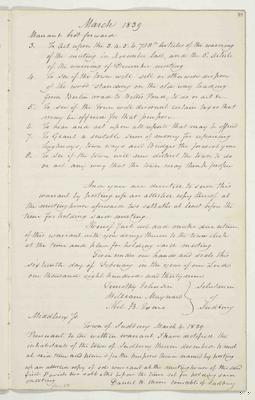 March 1839
Warrant &c brot forward
3. To act upon the 3. 4. 5. 6. 7 & 8th Articles of the warning
of the meeting in November last, and the 5. Article
of the warning of December meeting
4. To see if the town will sell or otherwise dispose
of the wood standing on the old way leading
from Berlin road to Willis Pond, to do or act &c
5. To see if the town will discount certain taxes that
may be offered for that purpose.
6. To hear and act upon all reports that may be offered
7. To Grant a suitable sum of money for repairing
highways, town ways and Bridges the present year
8. To see if the town will new district the town to do
or act any way that the town may think proper
And you are directed to serve this
warrant by posting up an attested copy thereof at
the meeting house aforesaid two sabbaths at least before the
time for holding said meeting.
Hereof fail not, and make due return
of this warrant with your doings thereon to the town clerk
at the time and place for holding said meeting
Given under our hands and seals this
sixteenth day of February in the year of our Lord
one thousand eight hundred and thirty nine
William Maynard
Selectmen
of
Sudbury
Middlesex Ss
Town of Sudbury March 4. 1839
Pursuant to the within warrant I have notified the
inhabitants of the town of Sudbury therein described to meet
at said time and place & for the purpose therein named by posting
up an attested copy of said warrant at the meeting house of the said
first Parish two sabbaths before the time set for holding said
meeting
Constable of Sudbury